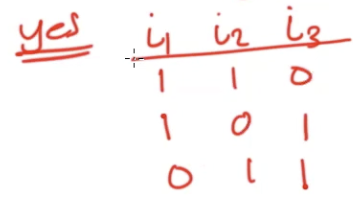 yes i₁ i₂ i₃
1 1 0
1 0 1
0 1 1